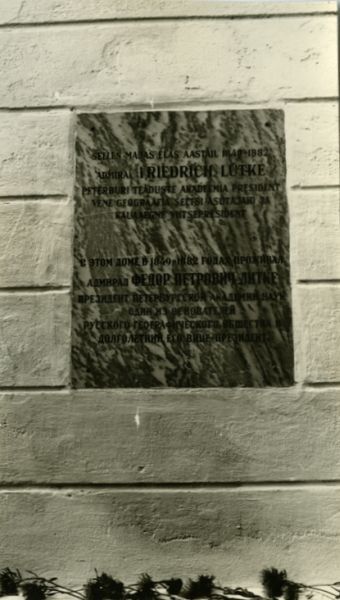 SELLES MAJAS ELAS AASTAIL 1849-1882
ADMIRAL FRIEDRICH LÜTKE
PETERBURI TEADUSTE AKADEEMIA PRESIDENT
VENE GEOGRAAFIA SELTSI ASUTAJAID JA
KAUAAEGNE VIITSEPRESIDENT
В ЭТОМ ДОМЕ В 1849-1882 ГОДАХ ПРОЖИВАЛ
АДМИРАЛ ФЕДОР ПЕТРОВИЧ ЛИТКЕ
ПРЕЗИДЕНТ ПЕТЕРБУРГСКОЙ АКАДЕМИИ НАУК
ОДИН ИЗ ОСНОВАТЕЛЕЙ
РУССКОГО ГЕОГРАФИЧЕСКОГО ОБЩЕСТВА И
ДОЛГОЛЕТНИЙ ЕГО ВИЦЕ-ПРЕЗИДЕНТ